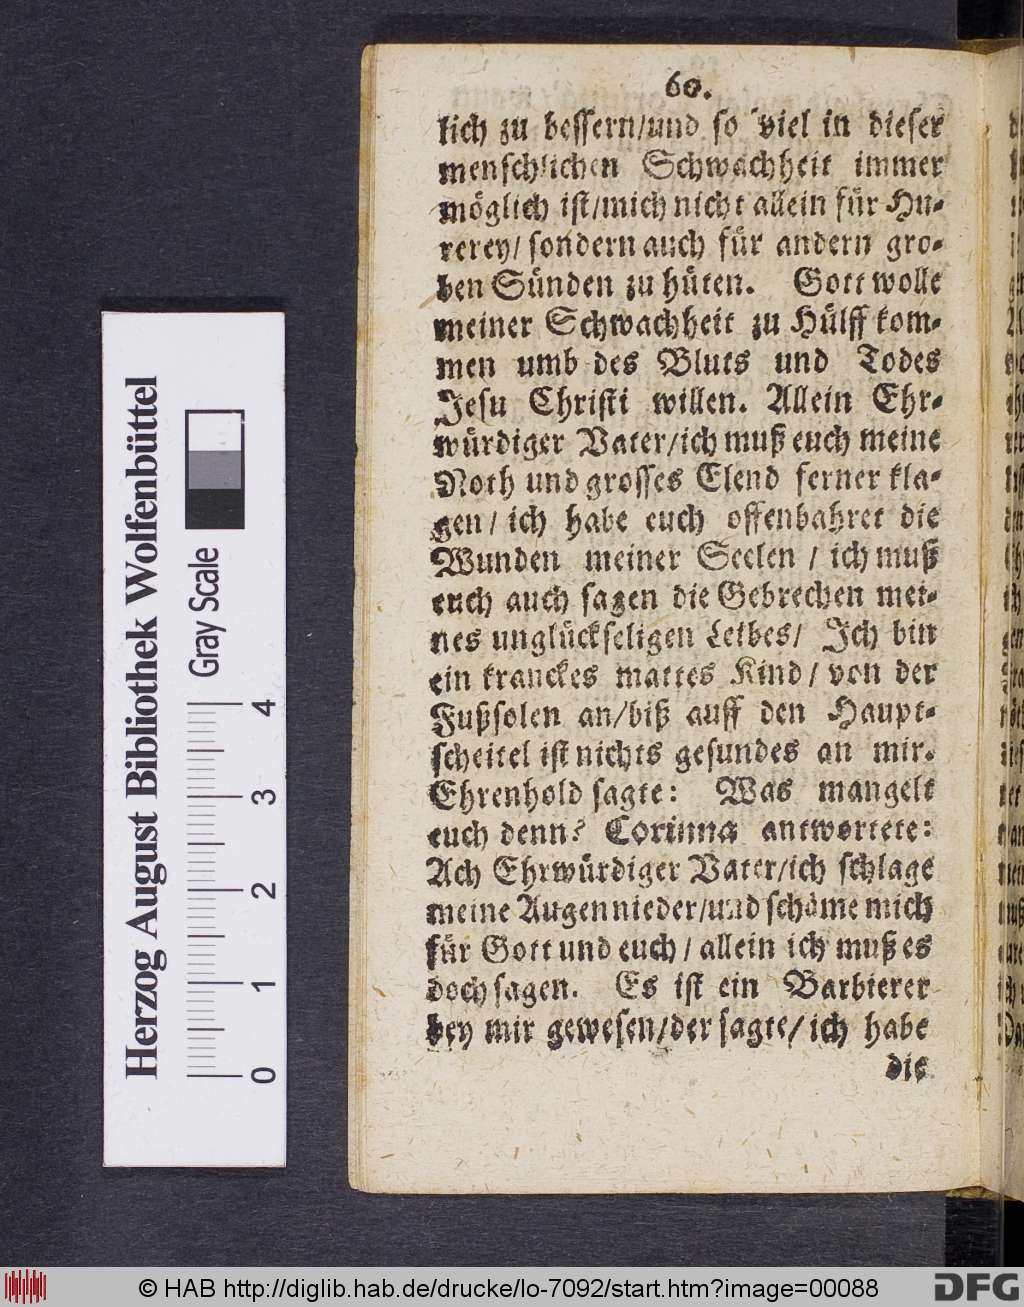 60.
lich zu bessern/und so viel in dieser
menschlichen Schwachheit immer
möglich ist/mich nicht allein für Hu-
rerey/ sondern auch für andern gro-
ben Sünden zu hüten. Gott wolle
meiner Schwachheit zu Hülff kom-
men umb des Bluts und Todes
Jesu Christi willen. Allein Ehr-
würdiger Vater/ich muß euch meine
Noth und grosses Elend ferner kla-
gen/ ich habe euch offenbahret die
Wunden meiner Seelen / ich muß
euch auch sagen die Gebrechen mei-
nes unglückseligen Leibes/ Ich bin
ein kranckes mattes Kind/ von der
Fußsolen an/biß auff den Haupt-
scheitel ist nichts gesundes an mir.
Ehrenhold sagte: Was mangelt
euch denn? Corinna antwortete:
Ach Ehrwürdiger Vater/ich schlage
meine Augen nieder/und schäme mich
für Gott und euch/ allein ich muß es
doch sagen. Es ist ein Barbierer
bey mir gewesen/der sagte/ ich habe
die
Herzog August Bibliothek Wolfenbüttel
Gray Scale
0 1 2 3 4
© HAB http://diglib.hab.de/drucke/lo-7092/start.htm?image=00088
DFG